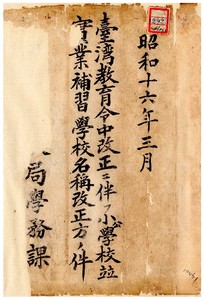 昭和十六年三月
臺灣教育令中改正ニ伴フ小學校竝
實業補習學校名稱改正方ノ件
局學務課